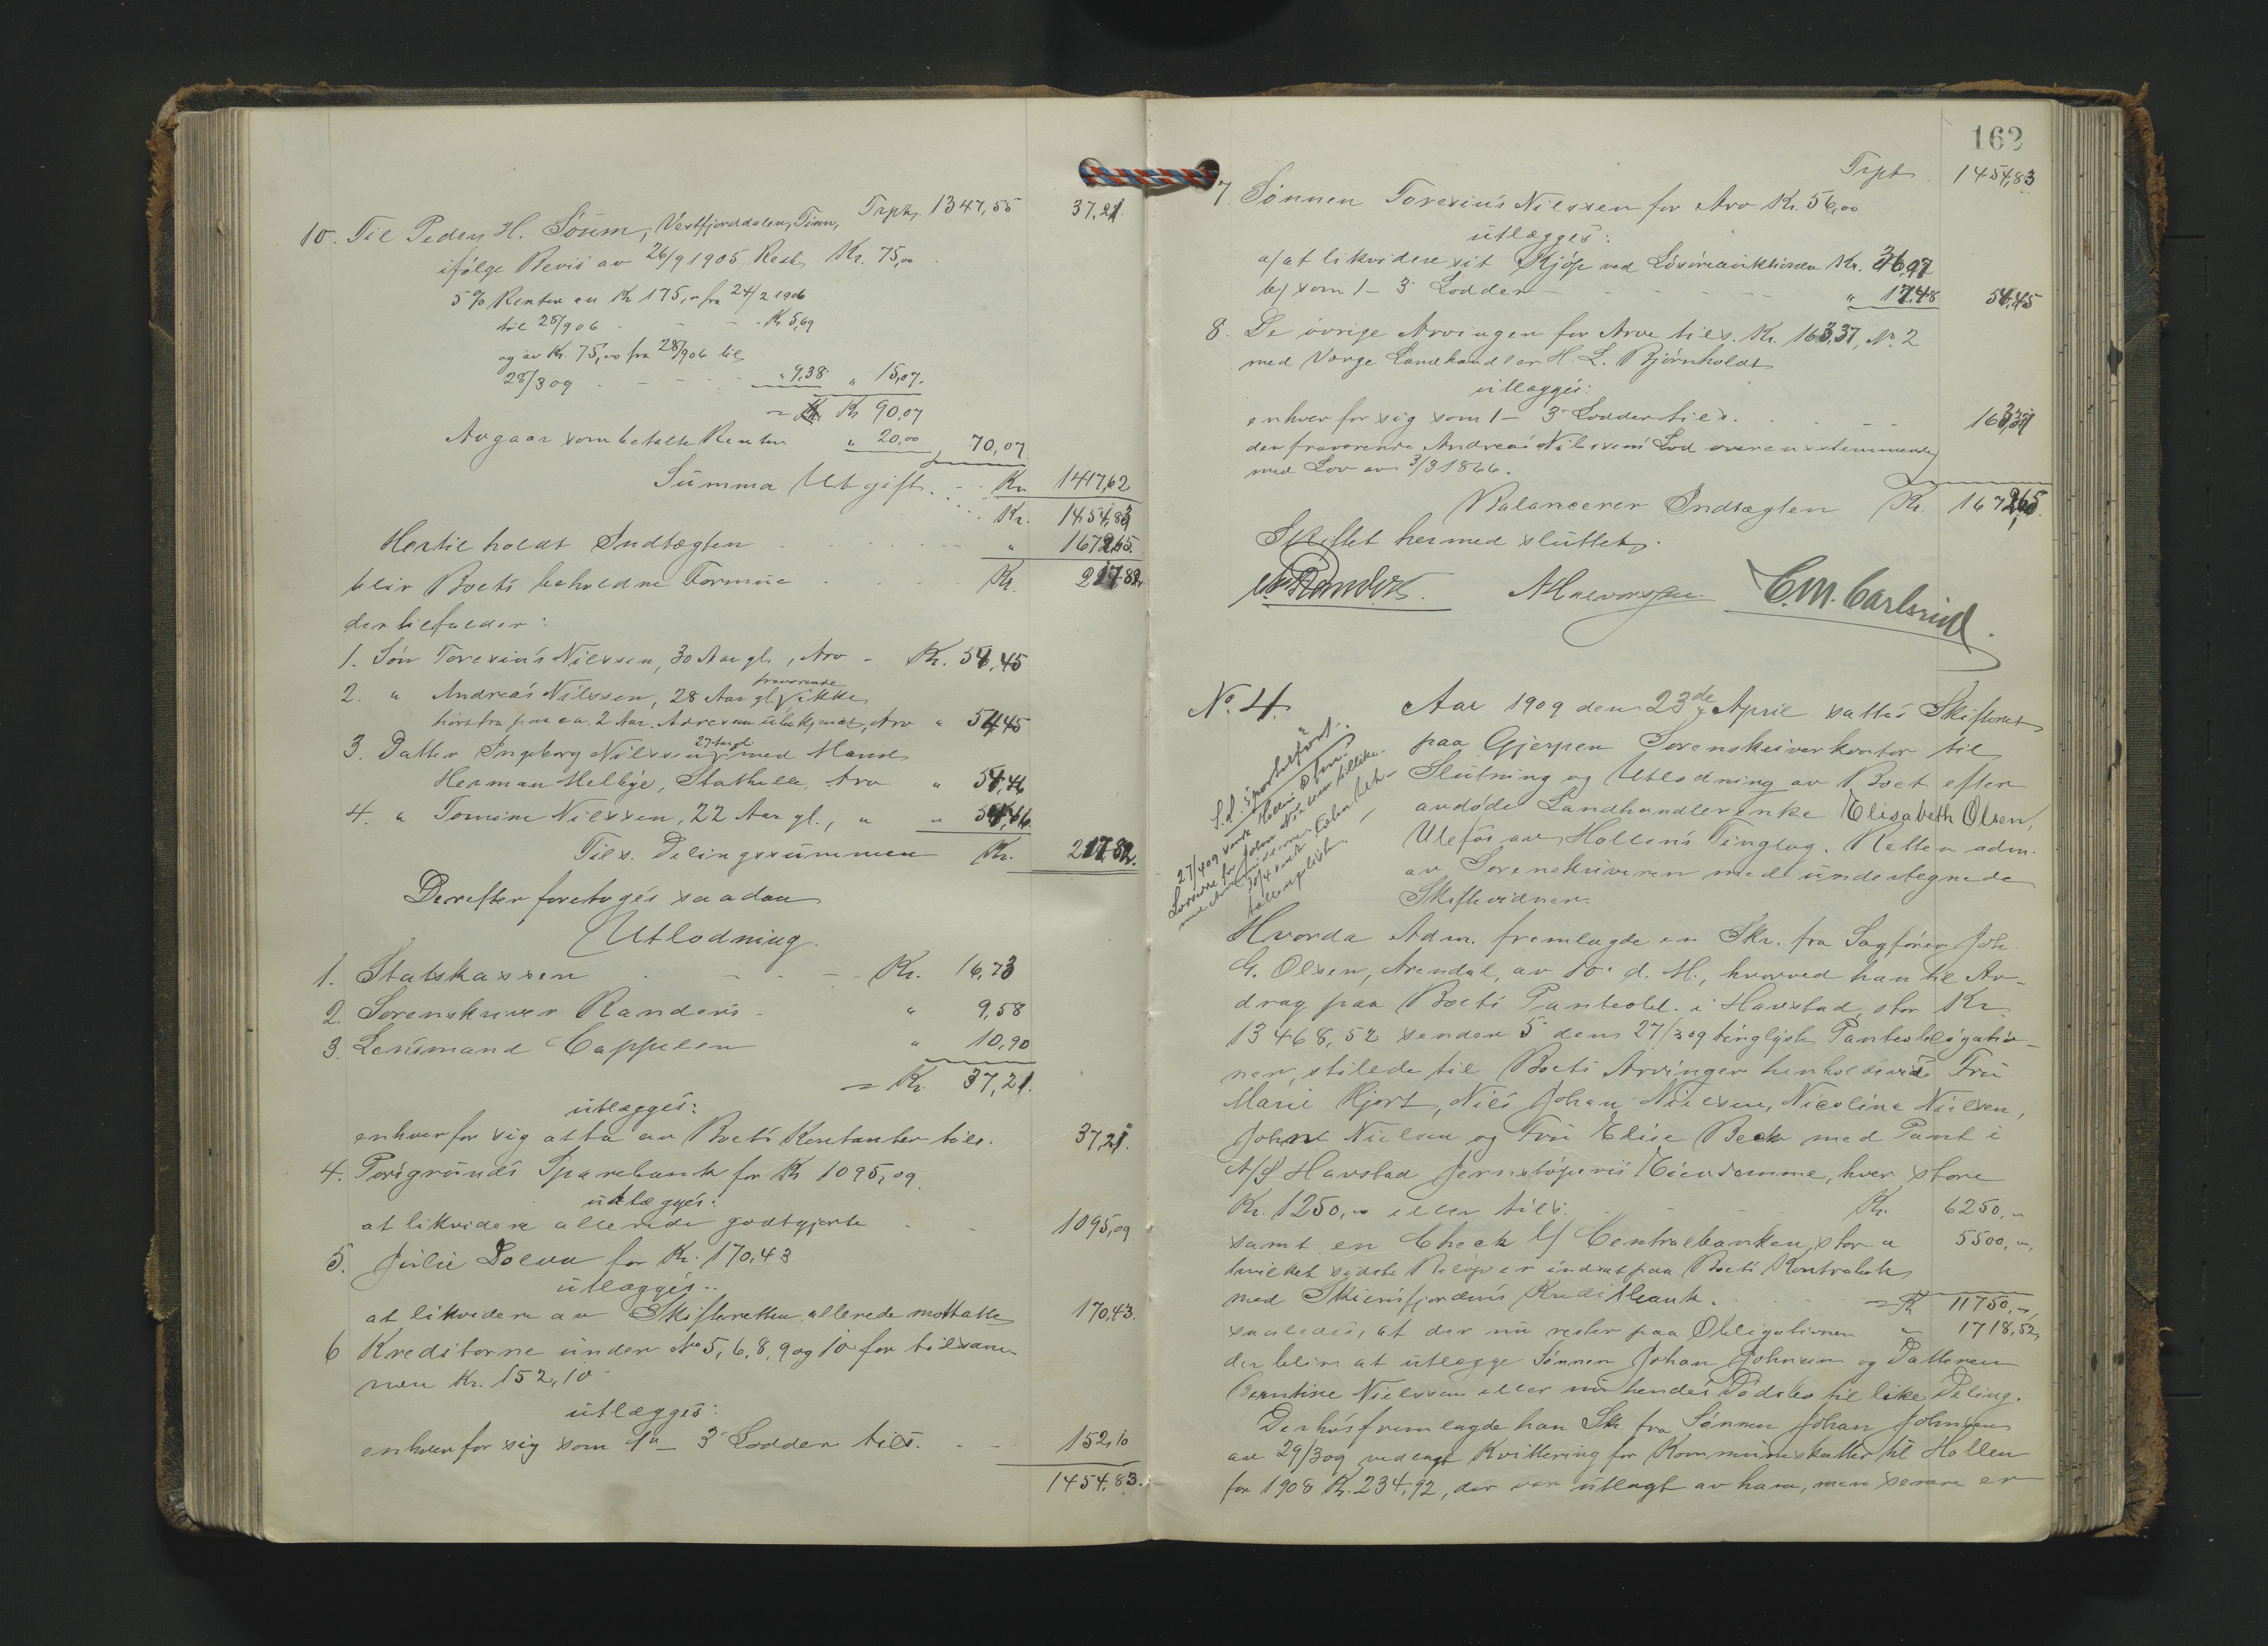 Trpt. 1347,55 37,21.
10. Til Peder H. Sőum, Vestfjorddalen, Tinn,
ifølge Bevis av 26/9 1905, Rest. Kr. 75,00
5% Renter av Kr 175,00 fra 24/2 1906
til 28/9 06 - - - Kr. 5,69
og av Kr. 75,00 fra 28/9 06 til
28/3 09 - - - " 9,38 " 15,07.
= Kr 90,07
Avgaar som betalte Renter " 20,00 70,07
Summa Utgift. - - Kr. 1417,62
Kr. 1454,83
Hertil holdt Indtægten " 1672,65.
blir Boets beholdne Formue Kr. 217,82
der tilfalder:
1. Søn Toresius Nilssen, 30 Aar gl., Arv - Kr. 54,45
2. " Andreas Nilssen, 28 Aar gl., fraværende ikke
hørt fra paa ca. 2 Aar. Adressen ubekjendt, Arv " 54,45
3. Datter Ingeborg Nilssen 27 Aar gl. med Mand
Herman Melbye, Stathelle, Arv " 54,46
4. " Tomine Nilssen, 22 Aar gl., " " 54,46
Tils. Delingssummen Kr. 217,82.
Derefter foretoges saadan
Utlodning.
1. Statskassen - - - Kr. 16,73
2. Sorenskriver Randers - " 9,58
3. Lensmand Cappelen " 10,90
= Kr. 37,21.
utlægges:
enhver for sig atta av Boets Kontanter tils. 37,21.
4. Porsgrunds Sparebank for Kr 1095,09
utlægges:
at likvidere allerede godtgjorte - - 1095,09
5. Julie Dolva for Kr. 170,43
utlægges:
at likvidere av Skifteretten allerede mottatte 170,43.
6 Kreditorne under No 5, 6, 8, 9 og 10 for tilsam-
men Kr. 152,10
utlægges:
enhver for sig som 1 - 3 Lodder tils. - - 152,10
1454,83.
162
Trpt. 1454,83
7. Sønnen Toresius Nilssen for Arv Kr. 56,00
utlægges:
a/ at likvidere sit Kjøp ved Løsøreauktionen Kr. 36,97
b/ som 1 - 3 Lodder - - - " 17,48 54,45
8. De øvrige Arvinger for Arv tils. Kr. 163,37, No. 2
med Værge Landhandler H. L. Bjørnholdt
utlægges:
enhver for sig som 1 - 3 Lodder tils. - - 163,37
den fraværende Andreas Nilssens Lod overensstemmende
med Lov av 3/3 1866.
Balancerer Indtægten Kr. 1672,65.
Skiftet hermed sluttet.
Randers. A Halvorsen. C. M. Carlsrud.
No. 4. Aar 1909 den 23de April sattes Skifteret
paa Gjerpen Sorenskriverkontor til
Slutning og Utlodning av Boet efter
avdøde Landhandlerenke Elisabeth Olsen,
Ulefos av Hollens Tinglag. Retten adm.
av Sorenskriveren med undertegnede
Skiftevidner.
Hvorda Adm. fremlagde en Skr. fra Sagfører Joh.
G. Olsen, Arendal, av 10. d. M., hvorved han til Av-
drag paa Boets Panteobl. i Havstad, stor Kr.
13468,52 sender 5 den 27/3 09 tinglyste Panteobligatio-
ner, stilede til Boets Arvinger henholdsvis Fru
Marie Hjort, Nils Johan Nielsen, Nicoline Nielsen,
John Nielsen og Fru Elise Beck med Pant i
A/S Havstad Jernstøperis Eiendomme, hver store
Kr. 1250,00 eller tils. - - Kr. 6250,00
samt en Check b/ Centralbanken, stor " 5500,00,
hvilket sidste Beløp er indsat paa Boets Kontrabok
med Skiensfjordens Kreditbank. = Kr 11750,00,
saaledes, at der nu rester paa Obligationen " 1718,52,
der blir at utlægge Sønnen Johan Johnsen og Datteren
Berntine Nielssen eller nu hendes Dødsbo til like Deling.
Derhos fremlagde han Skr. fra Sønnen Johan Johnsen
av 29/3 09 vedlagt Kvittering for Kommuneskatter til Hollen
for 1908 Kr. 234,92, der var utlagt av ham, men senere er